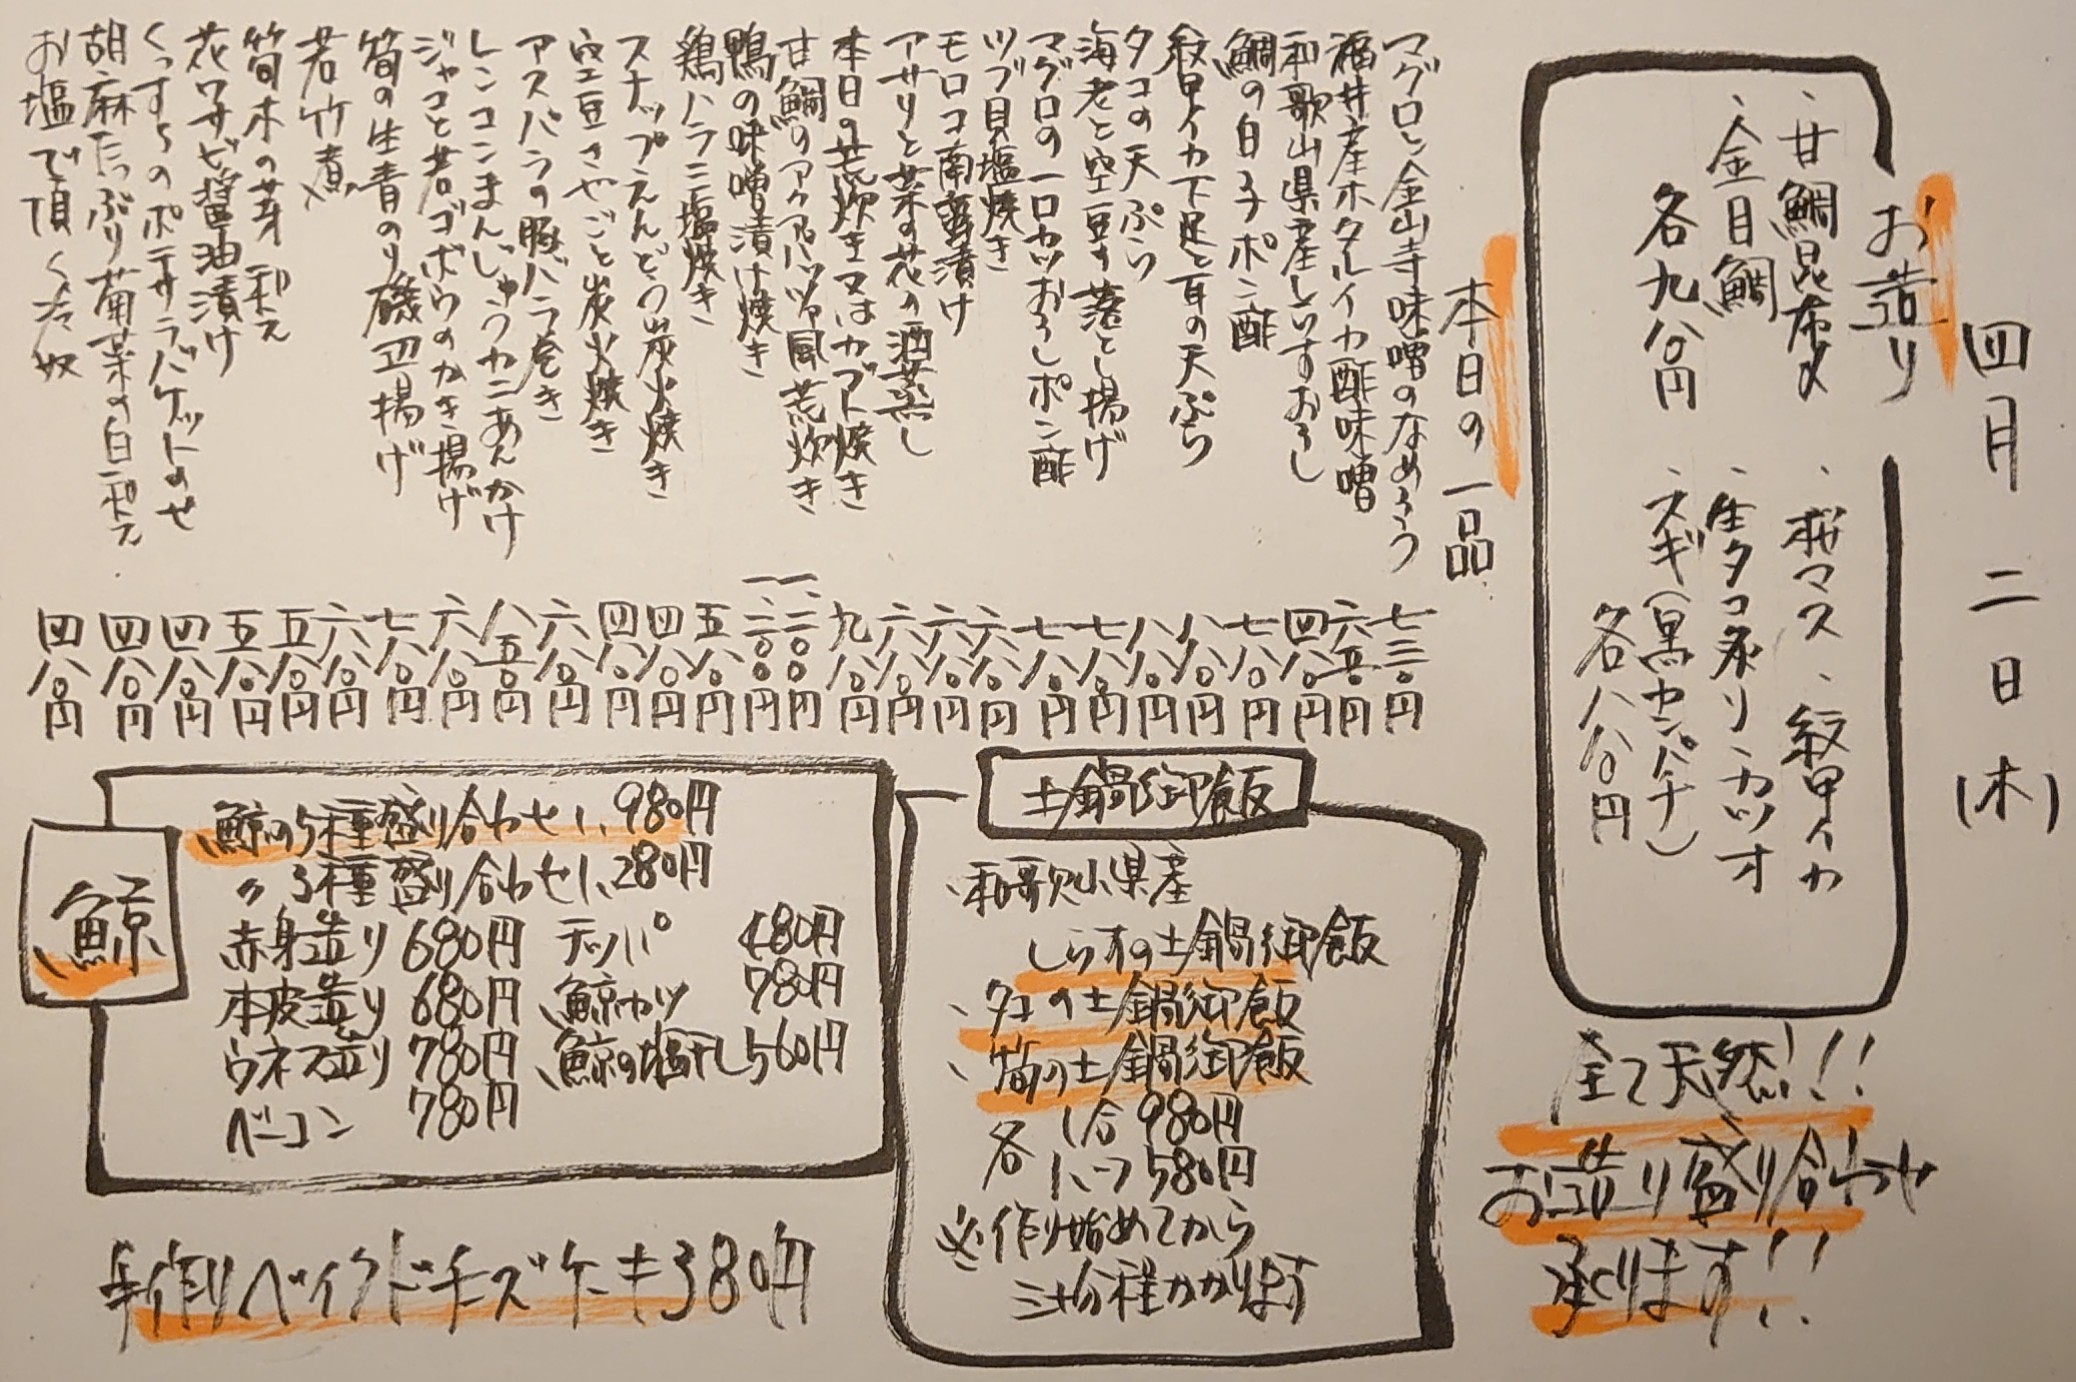 四月二日(木)
お造り
、甘鯛昆布〆
、金目鯛
各九八〇円
、桜マス、紋甲イカ
、生タコ、ネリ、カツオ
、スギ(黒カンパチ)
各八八〇円
全て天然!!
お造り盛り合わせ
承ります!!
本日の一品
マグロと金山寺味噌のなめろう 七三〇円
福井産ホタルイカ酢味噌 六五〇円
和歌山県産しらすおろし 四八〇円
鯛の白子ポン酢 七八〇円
紋甲イカ下足と耳の天ぷら 八八〇円
タコの天ぷら 八八〇円
海老と空豆の落とし揚げ 七八〇円
マグロの一口カツおろしポン酢 七八〇円
ツブ貝塩焼き 六八〇円
モロコ南蛮漬け 六八〇円
アサリと菜の花の酒蒸し 六八〇円
本日の荒炊き又はカブト焼き 九八〇円
甘鯛のアクアパッツァ風荒炊き 一、二〇〇円
鴨の味噌漬け焼き 一、二〇〇円
鶏ハラミ塩焼き 五八〇円
スナップえんどう炭火焼き 四八〇円
空豆さやごと炭火焼き 四八〇円
アスパラの豚バラ巻き 六八〇円
レンコンまんじゅうカニあんかけ 八五〇円
ジャコと若ゴボウのかき揚げ 六八〇円
筍の生青のり磯辺揚げ 七八〇円
若竹煮 六八〇円
筍木の芽和え 五八〇円
花ワサビ醤油漬け 五八〇円
くんすらのポテサラバケットのせ 四八〇円
胡麻たっぷり菊菜の白和え 四八〇円
お塩で頂く冷奴 四八〇円
土鍋御飯
、和歌山県産
しらすの土鍋御飯
、タコの土鍋御飯
、筍の土鍋御飯
各 1合 980円
ハーフ 580円
※作り始めてから
三十分程かかります
鯨
、鯨の5種盛り合わせ1、980円
〃 3種盛り合わせ1、280円
赤身造り 680円 テッパ 480円
本皮造り 680円 、鯨カツ 780円
ウネス造り 780円 、鯨の塩干し 560円
ベーコン 780円
手作りベイクドチーズケーキ380円